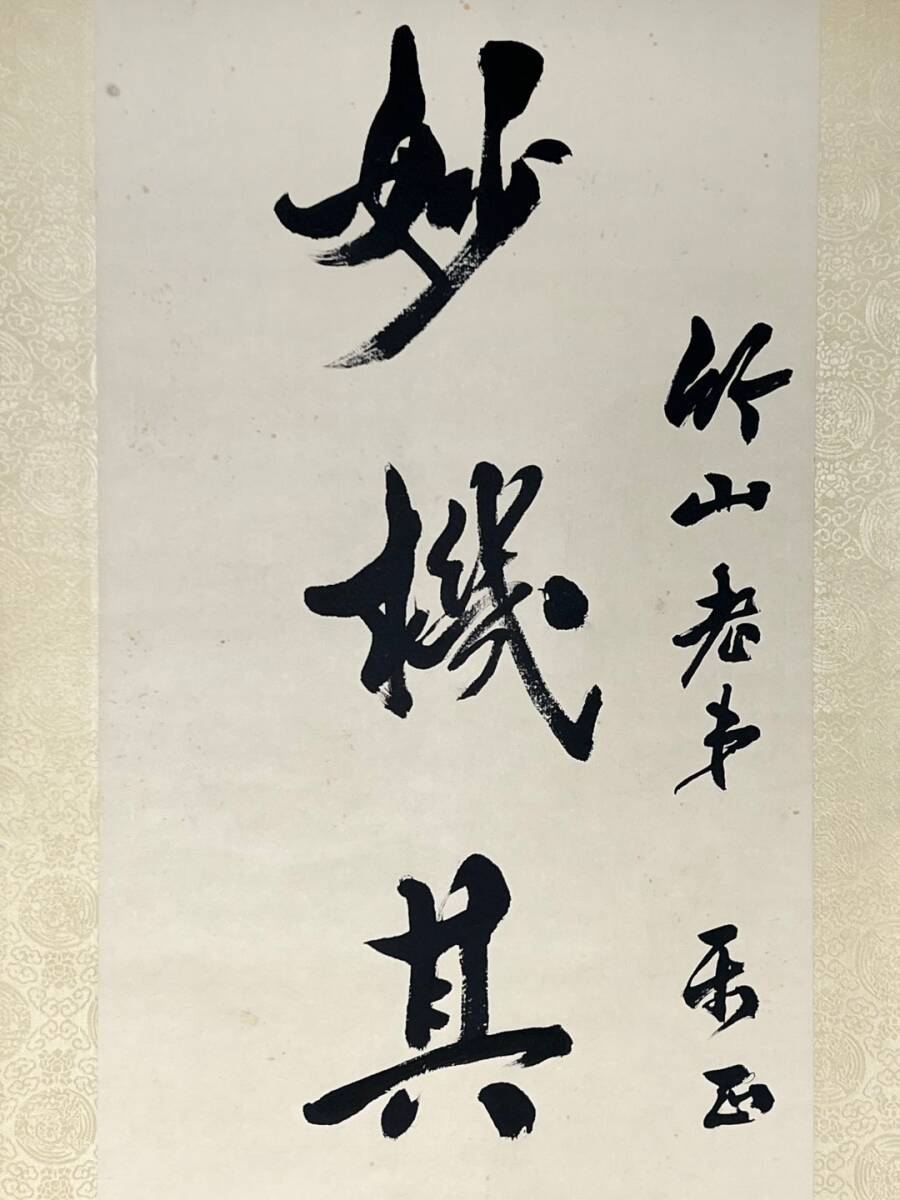 竹山老弟 雨正
妙機其